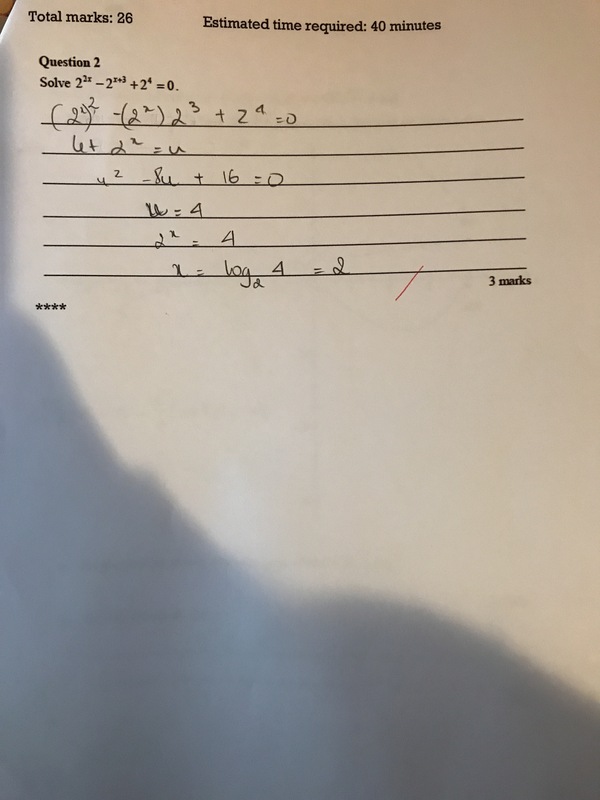 Total marks: 26 Estimated time required: 40 minutes
Question 2
Solve 2²ˣ – 2ˣ⁺³ + 2⁴ = 0.
(2ˣ)² -(2ˣ) 2³ + 2⁴ = 0
let 2ˣ = u
u² - 8u + 16 = 0
u = 4
2ˣ = 4
x = log₂ 4 = 2
3 marks
****